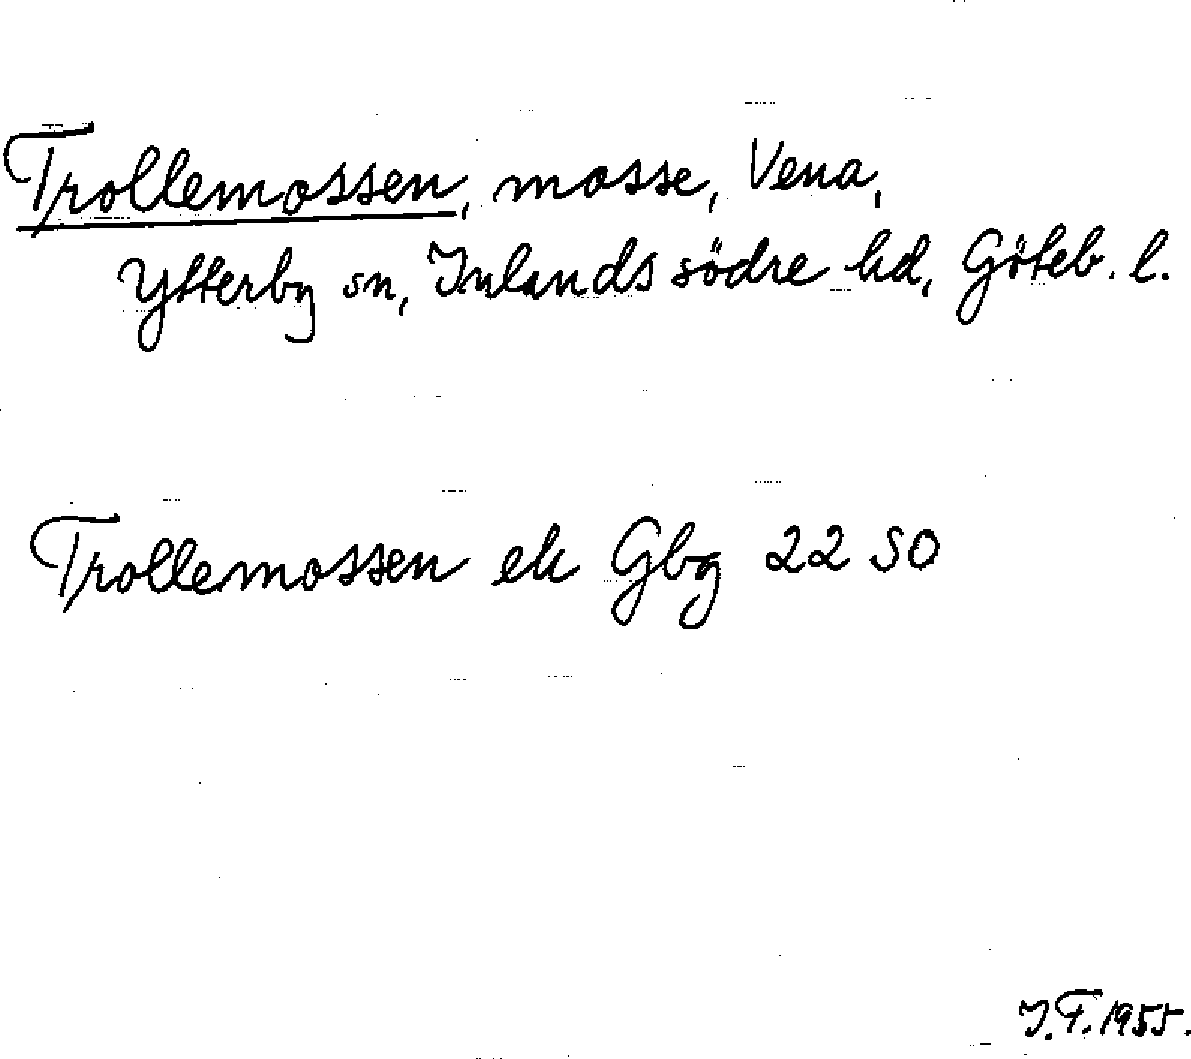 Trollemossen, mosse, Vena,
Ytterby sn, Inlands södre hd, Göteb. l.
Trollemossen ek Gbg 22 SO
I.F. 1955.